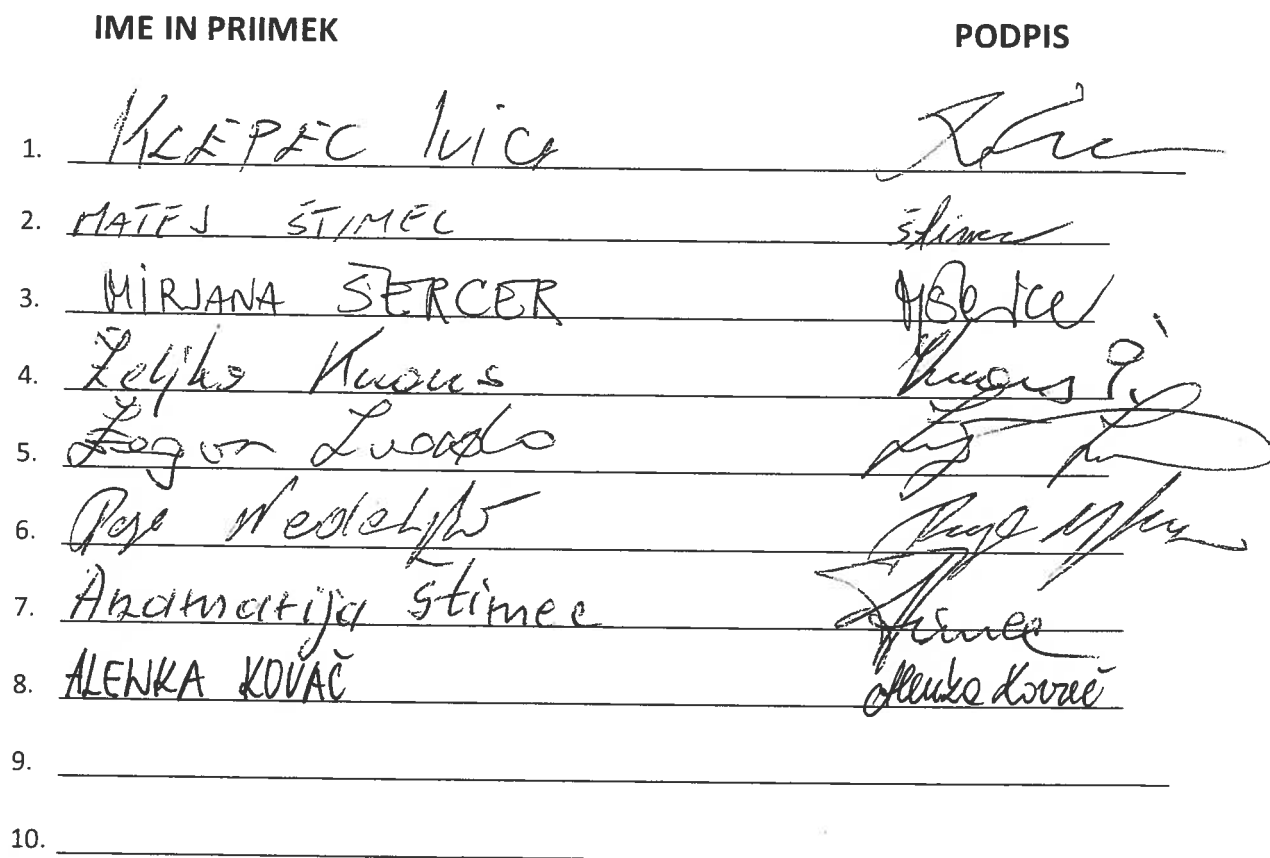 IME IN PRIIMEK PODPIS
1. KLEPEC Ivica
2. MATEJ ŠTIMEC Štimec
3. MIRJANA ŠERCER MŠercer
4. Željko Knaus Knaus Ž.
5. Žagar
6. Nedeljko
7. Anamarija Štimec Štimec
8. ALENKA KOVAČ Alenka Kovač
9.
10.